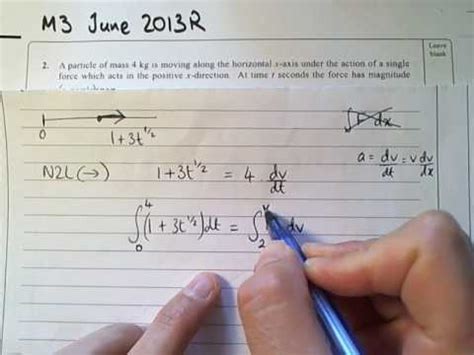 M3 June 2013R
Leave
blank
2. A particle of mass 4 kg is moving along the horizontal x-axis under the action of a single
force which acts in the positive x-direction. At time t seconds the force has magnitude
0
1+3t^{1/2}
∫F dx
a = dv/dt = v dv/dx
N2L(→) 1+3t^{1/2} = 4 dv/dt
∫_0^4 (1+3t^{1/2})dt = ∫_2^v dv